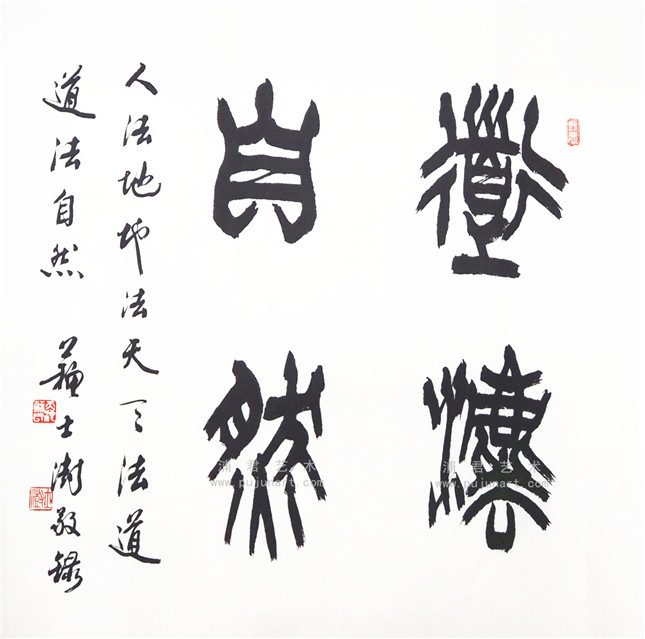 道灋
自然
人法地地法天天法道
道法自然 蘇士澍敬錄
浦君艺术
www.pujunart.com
浦君艺术
www.pujunart.com